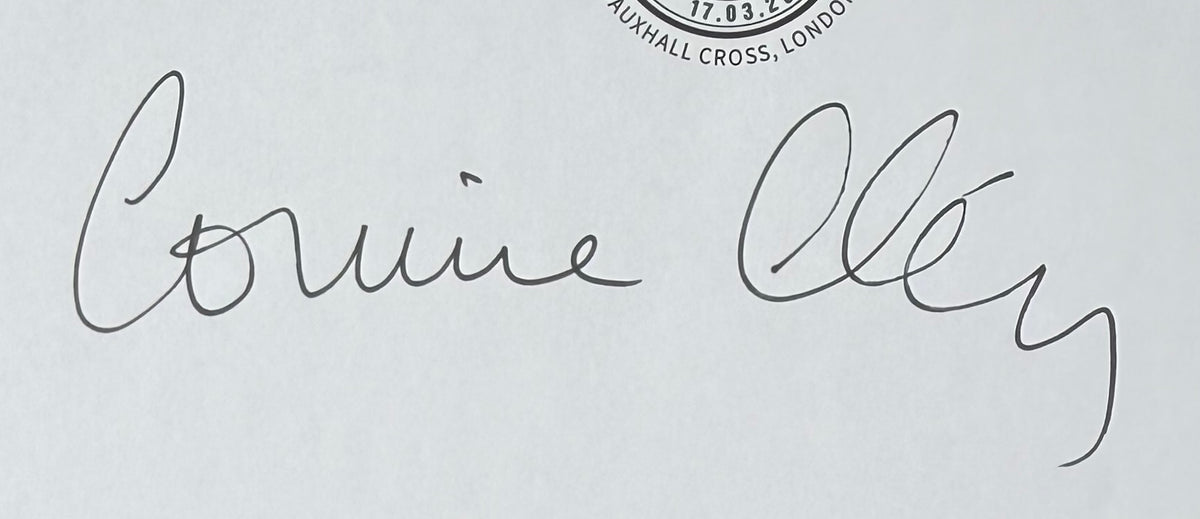 17.03.2
AUXHALL CROSS, LONDON
Corinne Cléry